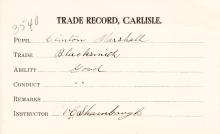 3540
TRADE RECORD, CARLISLE.
PUPIL Clinton Marshall
TRADE Blacksmith
ABILITY Good
CONDUCT " "
REMARKS
INSTRUCTOR H C Shambaugh